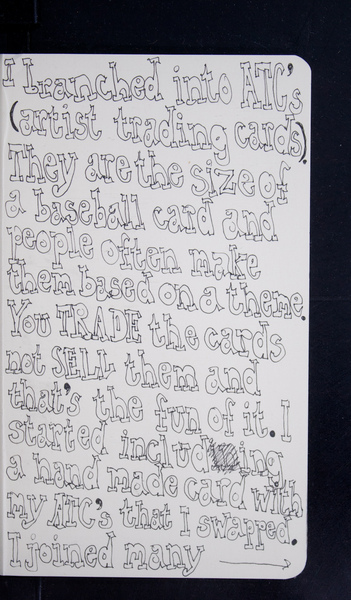 I branched into ATC's
(artist trading cards).
They are the size of
a baseball card and
people often make
them based on a theme.
You TRADE the cards
not SELL them and
that's the fun of it. I
started including
a hand made card with
my ATC's that I swapped.
I joined many